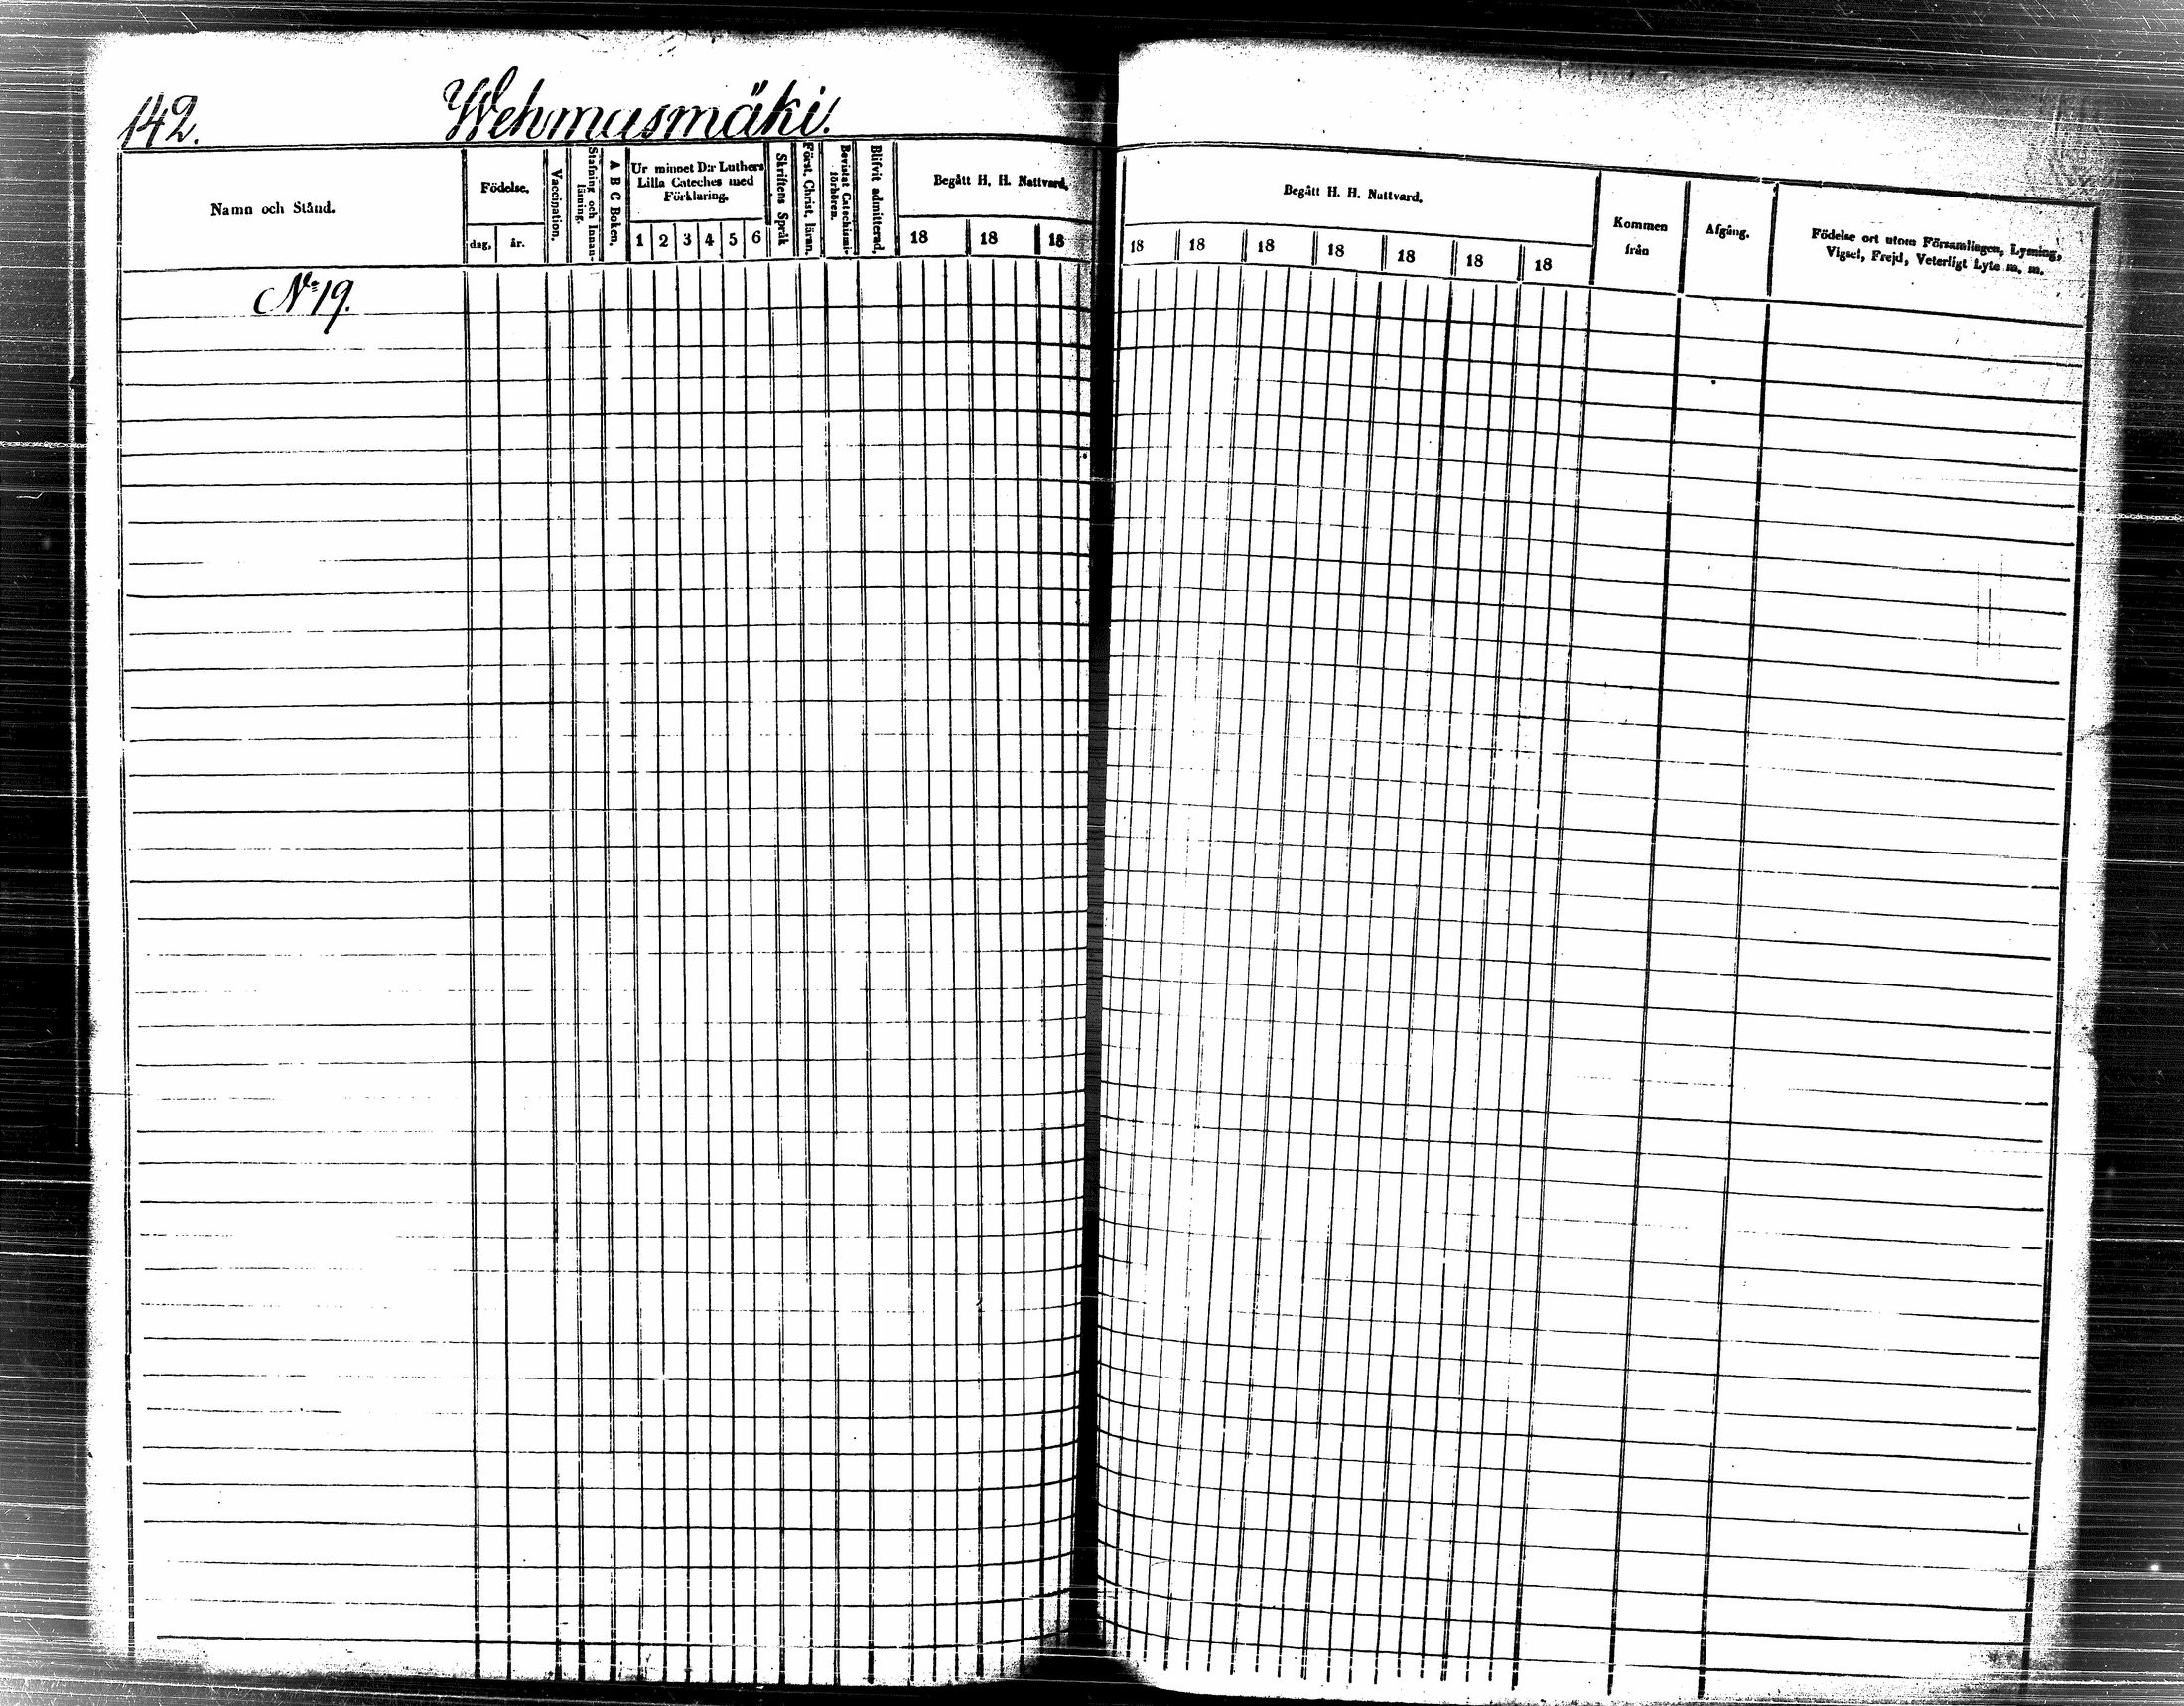 142. Wehmasmäki.
Namn och Stånd.
Födelse.
dag, år.
Vaccination.
Stafning och Innan-
läsning.
A B C Boken.
Ur minnet D:r Luthers
Lilla Cateches med
Förklaring.
1 2 3 4 5 6
Skriftens Språk
Först. Christ. läran.
Bevistat Catechismi-
förhören.
Blifvit admitterad.
Begått H. H. Nattvard.
18 18 18
Begått H. H. Nattvard.
18 18 18 18 18 18 18
Kommen
från
Afgång.
Födelse ort utom Församlingen, Lysning,
Vigsel, Frejd, Veterligt Lyte m. m.
No 19.